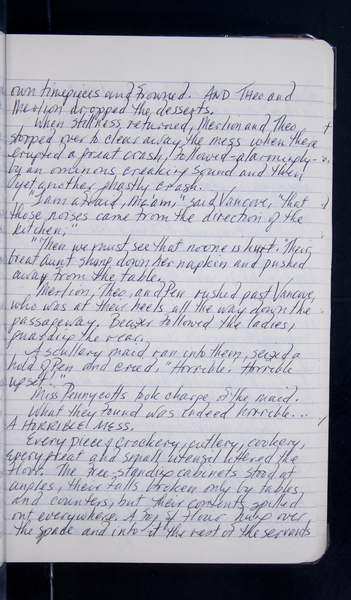 own timepieces and frowned. AND Theo and
Merlion dropped the desserts.
When stillness returned, Merlion and Theo
stooped over to clear away the mess when there
erupted a great crash, followed - alarmingly -
by an ominous creaking sound and then
yet another ghastly crash.
"I am afraid, Madam," said Vancove, "that
those noises came from the direction of the
kitchen."
"Then we must see that no one is hurt." Their
great aunt flung down her napkin and pushed
away from the table.
Merlion, Theo, and Pen rushed past Vancove,
who was at their heels all the way down the
passageway. Beazer followed the ladies,
guarding the rear.
A scullery maid ran into them, seized a
hold of Pen and cried, "Horrible. Horrible
upset!"
Miss Pennycotts took charge of the maid.
What they found was indeed horrible...
A HORRIBLE MESS.
Every piece of crockery, cutlery, cookery,
every great and small utensil littered the
floor. The free-standing cabinets stood at
angles, their falls broken only by tables
and counters, but their contents spilled
out everywhere. A fog of flour hung over
the space and into it the rest of the servants